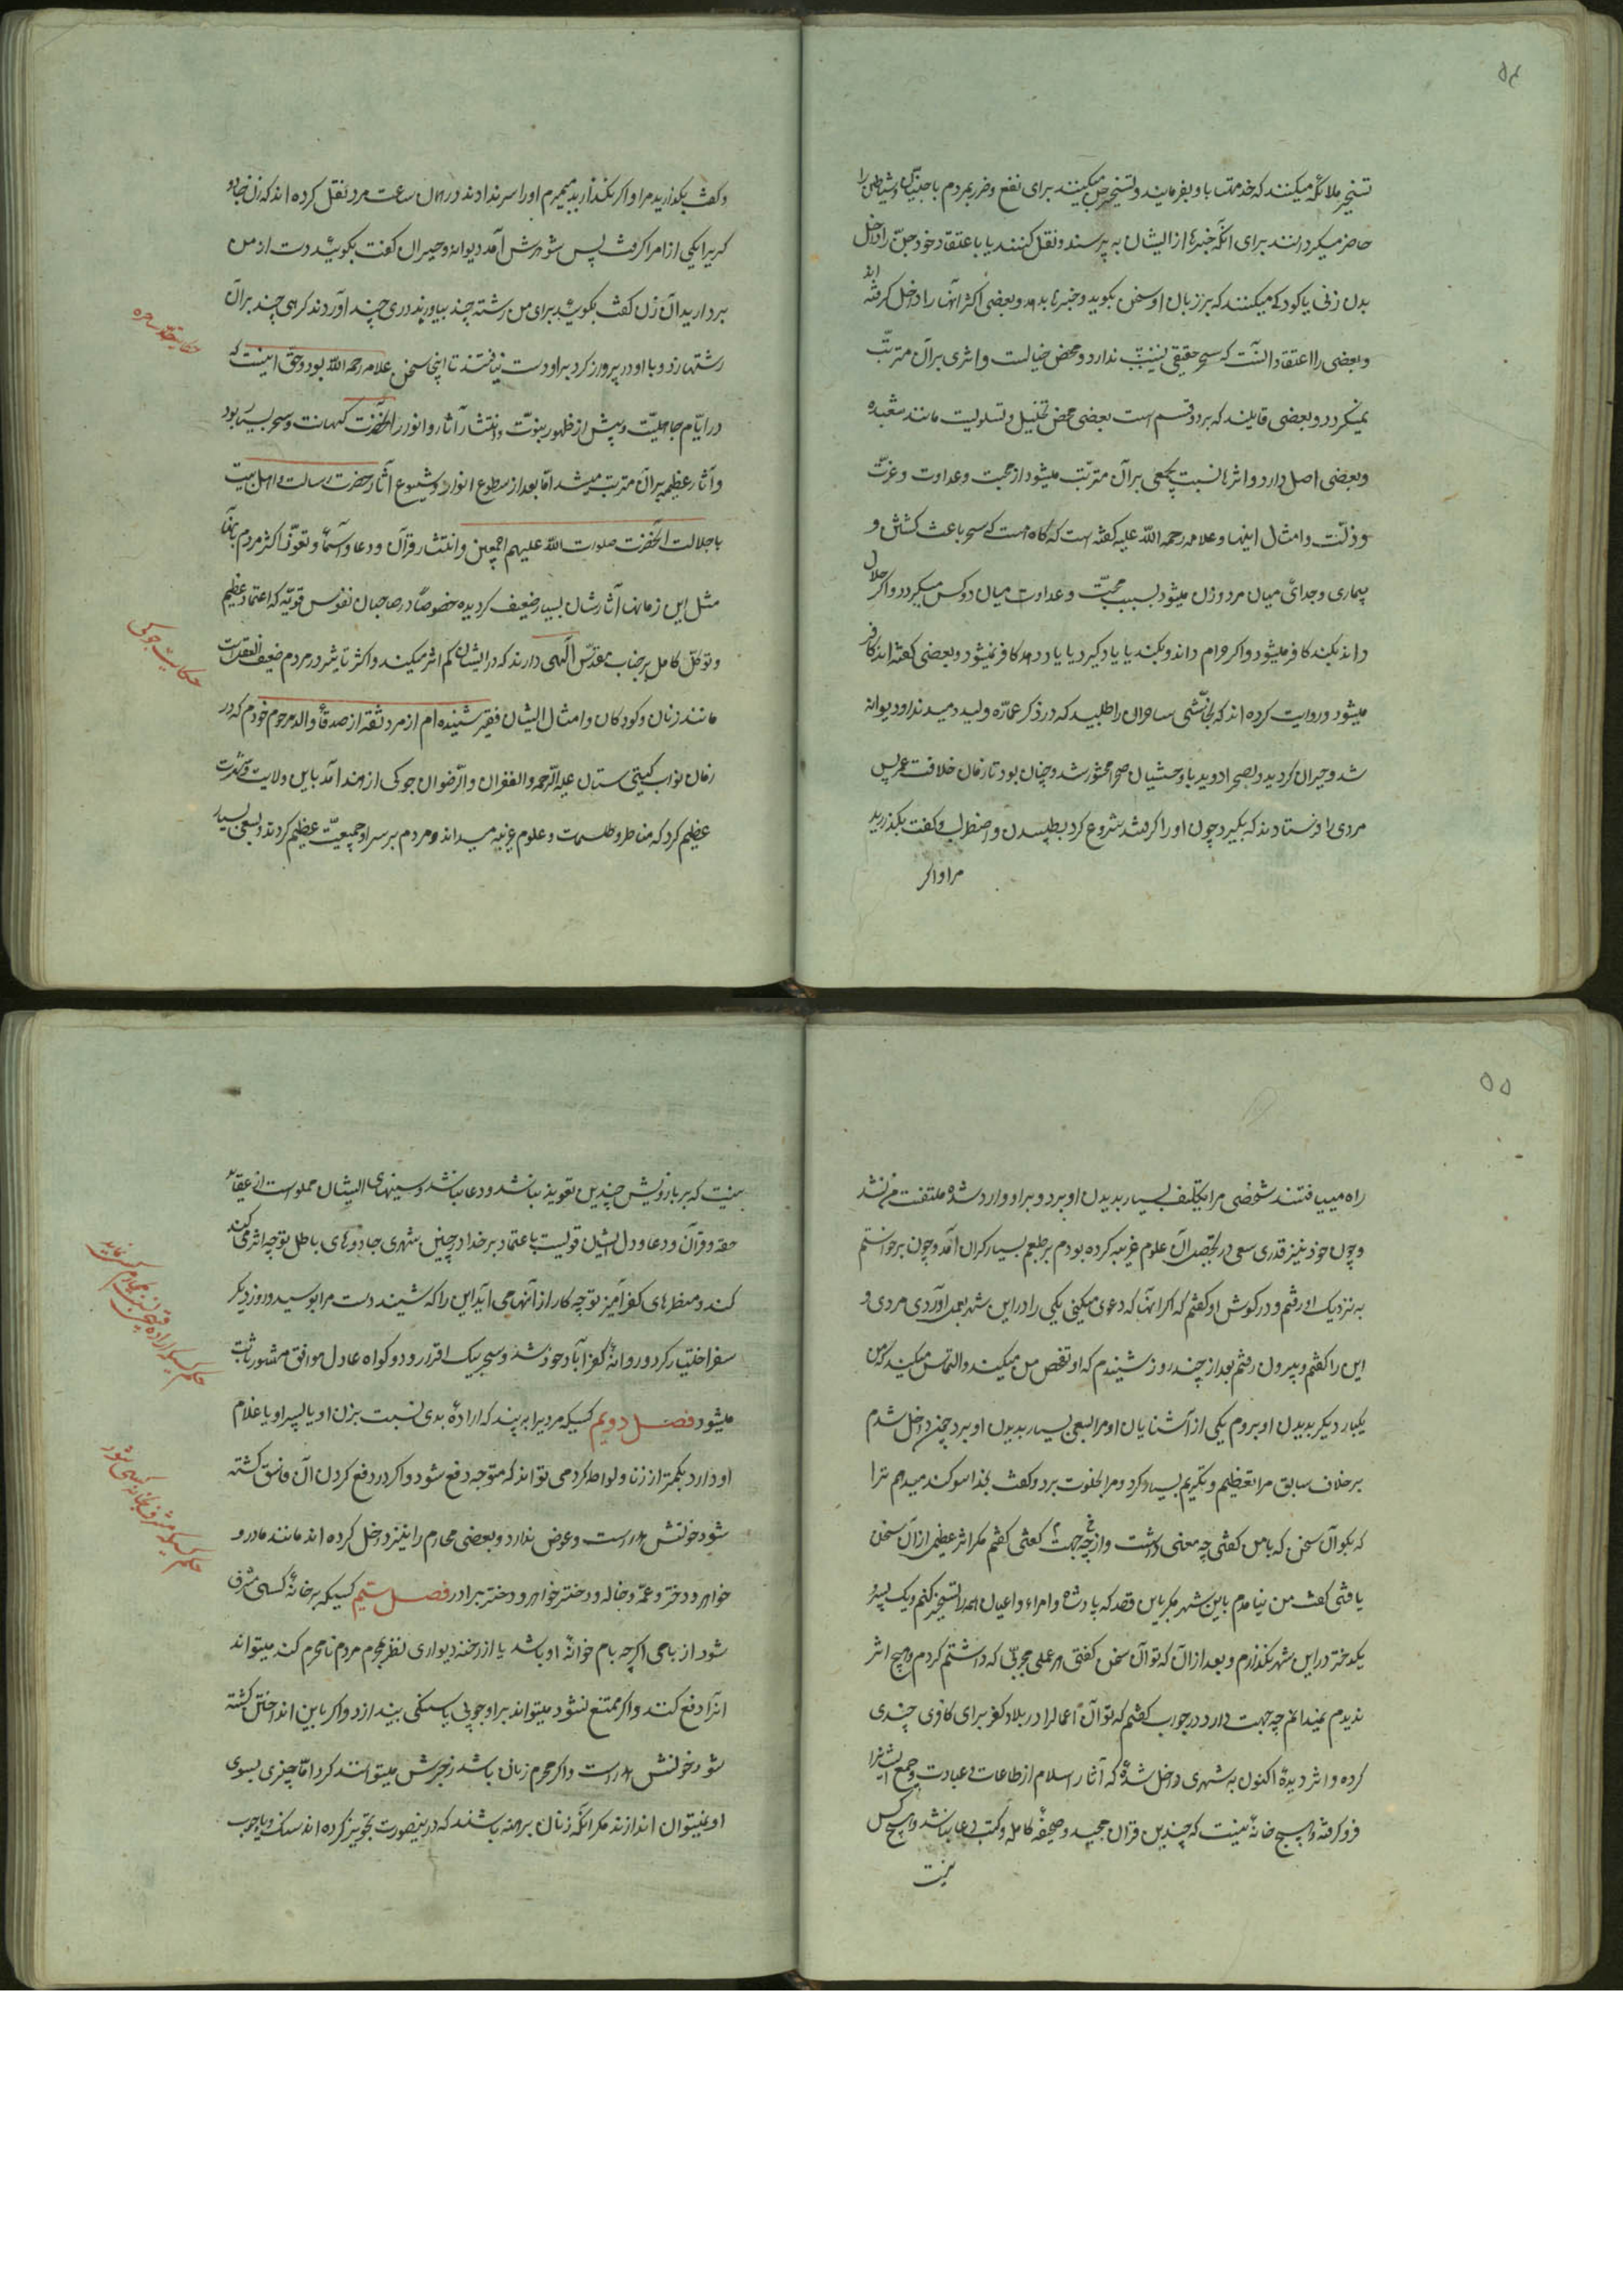 ۵۴
تسخیر ملائکه میکنند که خدمتها باو بفرمایند و تسخیر جن میکنند برای نفع و ضرر بمردم یا جنیان و شیاطین را
حاضر میکردانند برای انکه خبرها از ایشان به پرسند و نقل کنند یا باعتقاد خود جن را داخل
بدن زنی یا کودکی میکنند که بر زبان او سخن بکوید و خبرها بدهد و بعضی اکثر آنها را داخل کرفته اند
و بعضی را اعتقاد انست که سحر حقیقی نیست ندارد و محض خیالست و اثری بر آن مترتب
نمیکردد و بعضی قایلند که بر دو قسم است بعضی محض تخییل و تسلویست مانند شعبده
و بعضی اصل دارد و اثرها نسبت بجمعی بر آن مترتب میشود از محبت و عداوت و عزت
و ذلت و امثال اینها و علامه رحمه الله علیه کفته است که کاه هست که سحر باعث کشش و
بیماری و جدائی میان مرد و زن میشود بسبب محبت و عداوت میان دو کس میکردد و اکر حلال
داند بکند کافر میشود و اکر حرام داند و بکند یا یاد کیرد یا یاد دهد کافر نمیشود و بعضی کفته اند کافر
میشود و روایت کرده اند که نجاشی ساحران را طلبید که در ذکر عماره ولید دمیدند او دیوانه
شد و حیران کردید و بصحرا دوید با وحشیان صحرا محشور شد و چنان بود تا زمان خلافت عمر پس
مردی را فرستادند که بکیرد چون او را کرفت شروع کرد بطپیدن و اضطراب و کفت بکذارید
مرا و اکر
و کفت بکذارید مرا و اکر نکذارید میمیرم او را سر ندادند در همان ساعت مرد نقل کرده اند که زن جادو
کریرا یکی از امرا کرفت پس شوهرش آمد دیوانه و حیران کفت بکوئید دست از من
بردارید آن زن کفت بکوئید برای من رشته چند بیاورند دری چند آوردند کرهی چند بر آن
رشتها زد و با او در پرواز کرد بر او دست نیافتند تا اینجا سخن علامه رحمه الله بود و حق اینست که
در ایام جاهلیت و پیش از ظهور نبوت و انتشار آثار و انوار انحضرت کهانت و سحر بسیار بود
و آثار عظیم بر آن مترتب میشد اما بعد از سطوع انوار و شیوع آثار حضرت رسالت و اهل بیت
با جلالت انحضرت صلوات الله علیهم اجمعین و انتشار قرآن و دعا و اسما و تعوذ اکثر مردم بآنها
مثل این زمانها آثارشان بسیار ضعیف کردیده خصوصاً در صاحبان نفوس قویه که اعتماد عظیم
و توکل کامل بر جناب مقدس الهی دارند که در ایشان کم اثر میکند و اکثر تاثیر در مردم ضعیف العقل است
مانند زنان و کودکان و امثال ایشان فقیر شنیده ام از مرد ثقه از صدقاء والد مرحوم خودم که در
زمان نواب کیتی ستان علیه الرحمه و الغفران و الرضوان جوکی از هند آمد باین ولایت و شهرت
عظیم کرد که مناظر و طلسمات و علوم غریبه میداند و مردم بر سر او جمعیت عظیم کردند و بسعی بسیار
حکایت ساحره
حکایت جوکی
۵۵
راه مییافتند شخصی مرا بتکلیف بسیار بدیدن او برد و بر او وارد شدم ملتفت من نشد
و چون خود نیز قدری سعی در تحصیل آن علوم غریبه کرده بودم بر طبعم بسیار کران آمد و چون برخواستم
به نزدیک او رفتم و در کوش او کفتم که اکر آنها که دعوی میکنی یکی را در این شهر بعمل آوردی مردی و
این را کفتم و بیرون رفتم بعد از چند روز شنیدم که او تفحص من میکند و التماس میکند که من
یکبار دیکر بدیدن او بروم یکی از آشنایان او مرا بسعی بسیار بدیدن او برد چون داخل شدم
بر خلاف سابق مرا تعظیم و تکریم بسیار کرد و مرا بخلوت برد و کفت بخدا سوکند میدهم ترا
که بکو آن سخن که با من کفتی چه معنی داشت و از چه جهت کفتی کفتم مکر اثر عظیمی از آن سخن
یافتی کفت من نیامدم باین شهر مکر باین قصد که پادشاه و امراء و اعیان همه را تسخیر کنم و یک پسر و
یکدختر در این شهر نکذارم و بعد از آن که تو آن سخن کفتی هر عملی مجربی که داشتم کردم و هیچ اثر
ندیدم نمیدانم چه جهت دارد در جواب کفتم که تو آن اعمال را در بلاد کفر برای کافری چندی
کرده و اثر دیدهٔ اکنون به شهری داخل شدهٔ که آثار اسلام از طاعات و عبادت و جمع ایشانرا
فرو کرفته و هیچ خانهٔ نیست که چندین قرآن مجید و صحیفهٔ کامله و کتب دعا نباشد و هیچ کس
نیست
نیست که بر بازویش چندین تعویذ نباشد و دعا نباشد و سینهای ایشان مملو است از عقاید
حقه و قرآن و دعا و دل ایشان قویست باعتماد بر خدا در چنین شهری جادوهای باطل تو چه اثر می کند
کند و منظرهای کفر آمیز تو چه کار از آنها می آید این را که شنید دست مرا بوسید و روز دیکر
سفر اختیار کرد و روانهٔ کفر آباد خود شد و سحر بیک اقرار و دو کواه عادل موافق مشهور ثابت
میشود فصل دویم کسیکه مردیرا به بیند که ارادهٔ بدی نسبت بزن او یا پسر او یا غلام
او دارد بکمتر از زنا و لواط کردمی تواند که متوجه دفع شود و اکر در دفع کردن آن فاسق کشته
شود خونش هدر است و عوض ندارد و بعضی محارم را نیز داخل کرده اند مانند مادر و
خواهر و دختر و عمه و خاله و دختر خواهر و دختر برادر فصل سیم کسیکه بر خانهٔ کسی مشرف
شود از بامی اکرچه بام خوانهٔ او باشد یا از رخنه دیواری نظر بحرم مردم نامحرم کند میتواند
انرا دفع کنند و اکر ممتنع نشود میتواند بر او چوبی یا سنکی بیندازد و اکر باین انداختن کشته
شود خونش هدر است و اکر محرم زنان باشد زجرش میتوانند کرد اما چیزی بسوی
او نمیتوان اندازند مکر انکه زنان برهنه باشند که در ینصورت تجویز کرده اند سنک و یا چوب
حکم کسیکه مشرف بخانه کسی شود